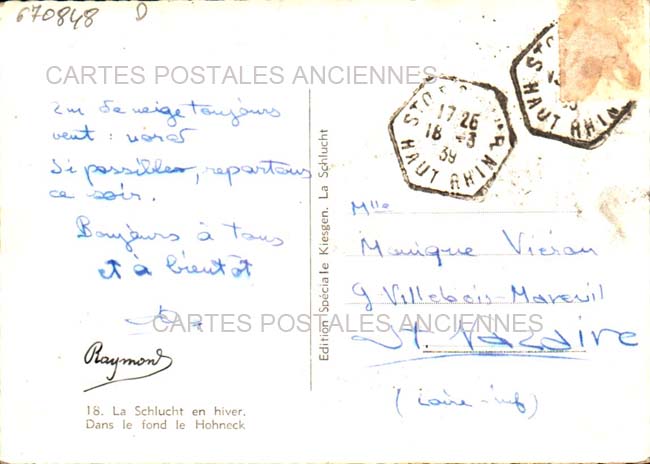 670848 D
CARTES POSTALES ANCIENNES
2m de neige toujours
vent : nord
Si possible, repartons
ce soir.
Bonjours à tous
et à bientôt
CARTES POSTALES ANCIENNES
Raymond
18. La Schlucht en hiver.
Dans le fond le Hohneck
Edition Spéciale Kiesgen. La Schlucht
17 25
18 - 3
39
HAUT RHIN
HAUT RHIN
Mlle
Monique Viéron
9 Villebois-Mareuil
St. Nazaire
(Loire-inf)